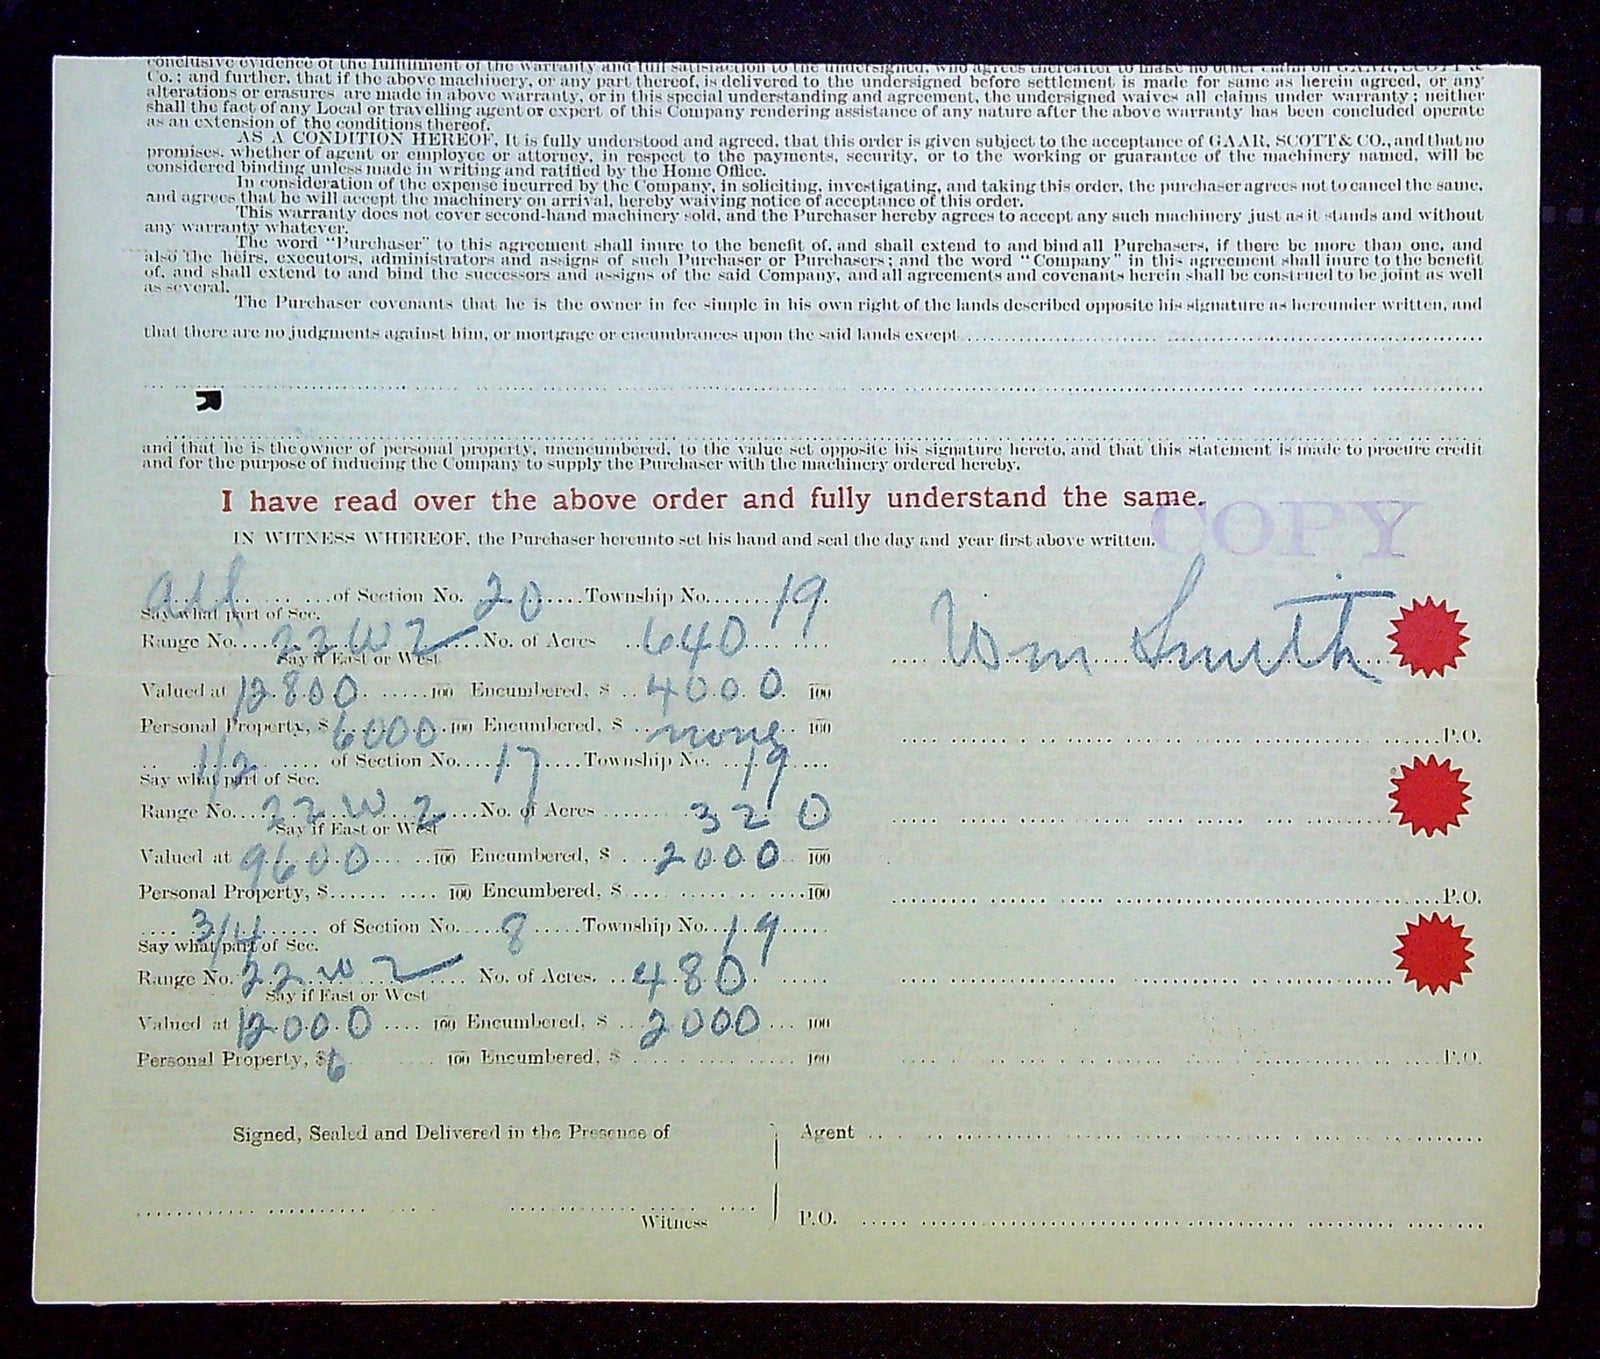 conclusive evidence of the fulfillment of the warranty and full satisfaction to the undersigned, who agrees thereafter to make no other claim on GAAR, SCOTT &
Co.; and further, that if the above machinery, or any part thereof, is delivered to the undersigned before settlement is made for same as herein agreed, or any
alterations or erasures are made in above warranty, or in this special understanding and agreement, the undersigned waives all claims under warranty; neither
shall the fact of any Local or travelling agent or expert of this Company rendering assistance of any nature after the above warranty has been concluded operate
as an extension of the conditions thereof.
AS A CONDITION HEREOF, It is fully understood and agreed, that this order is given subject to the acceptance of GAAR, SCOTT & CO., and that no
promises, whether of agent or employee or attorney, in respect to the payments, security, or to the working or guarantee of the machinery named, will be
considered binding unless made in writing and ratified by the Home Office.
In consideration of the expense incurred by the Company, in soliciting, investigating, and taking this order, the purchaser agrees not to cancel the same,
and agrees that he will accept the machinery on arrival, hereby waiving notice of acceptance of this order.
This warranty does not cover second-hand machinery sold, and the Purchaser hereby agrees to accept any such machinery just as it stands and without
any warranty whatever.
The word "Purchaser" to this agreement shall inure to the benefit of, and shall extend to and bind all Purchasers, if there be more than one, and
also the heirs, executors, administrators and assigns of such Purchaser or Purchasers; and the word "Company" in this agreement shall inure to the benefit
of, and shall extend to and bind the successors and assigns of the said Company, and all agreements and covenants herein shall be construed to be joint as well
as several.
The Purchaser covenants that he is the owner in fee simple in his own right of the lands described opposite his signature as hereunder written, and
that there are no judgments against him, or mortgage or encumbrances upon the said lands except
R
and that he is the owner of personal property, unencumbered, to the value set opposite his signature hereto, and that this statement is made to procure credit
and for the purpose of inducing the Company to supply the Purchaser with the machinery ordered hereby.
I have read over the above order and fully understand the same.
COPY
IN WITNESS WHEREOF, the Purchaser hereunto set his hand and seal the day and year first above written.
All of Section No. 20 Township No. 19
Say what part of Sec.
Range No. 22 W 2 No. of Acres 640 Wm Smith
Say if East or West
Valued at 12800 100 Encumbered, $ 4000 100
Personal Property, $ 6000 100 Encumbered, $ none 100 P.O.
1/2 of Section No. 17 Township No. 19
Say what part of Sec.
Range No. 22 W 2 No. of Acres 320
Say if East or West
Valued at 9600 100 Encumbered, $ 2000 100
Personal Property, $ 100 Encumbered, $ 100 P.O.
3/4 of Section No. 8 Township No. 19
Say what part of Sec.
Range No. 22 W 2 No. of Acres. 480
Say if East or West
Valued at 12000 100 Encumbered, $ 2000 100
Personal Property, $ 6 100 Encumbered, $ 100 P.O.
Signed, Sealed and Delivered in the Presence of Agent
Witness P.O.